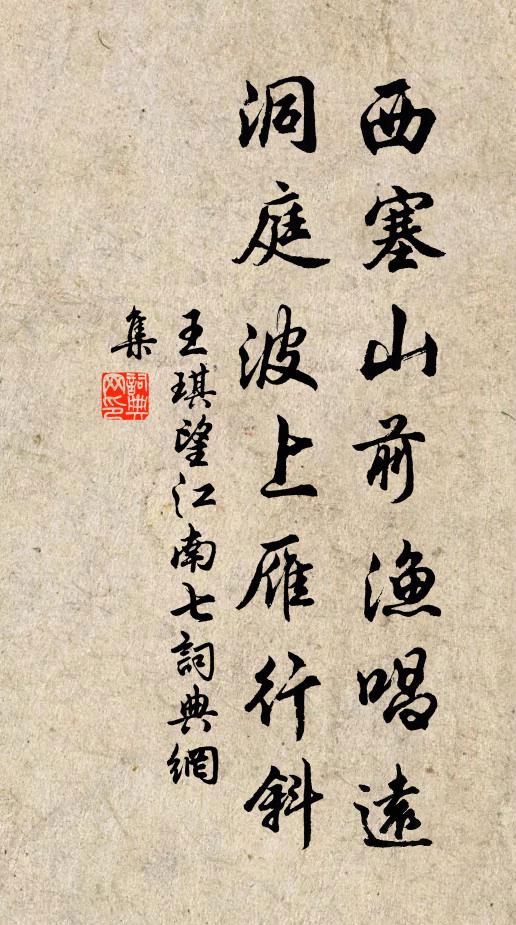 西塞山前漁唱遠
洞庭波上雁行斜
王琪望江南七詞典網
集
詞典
網印